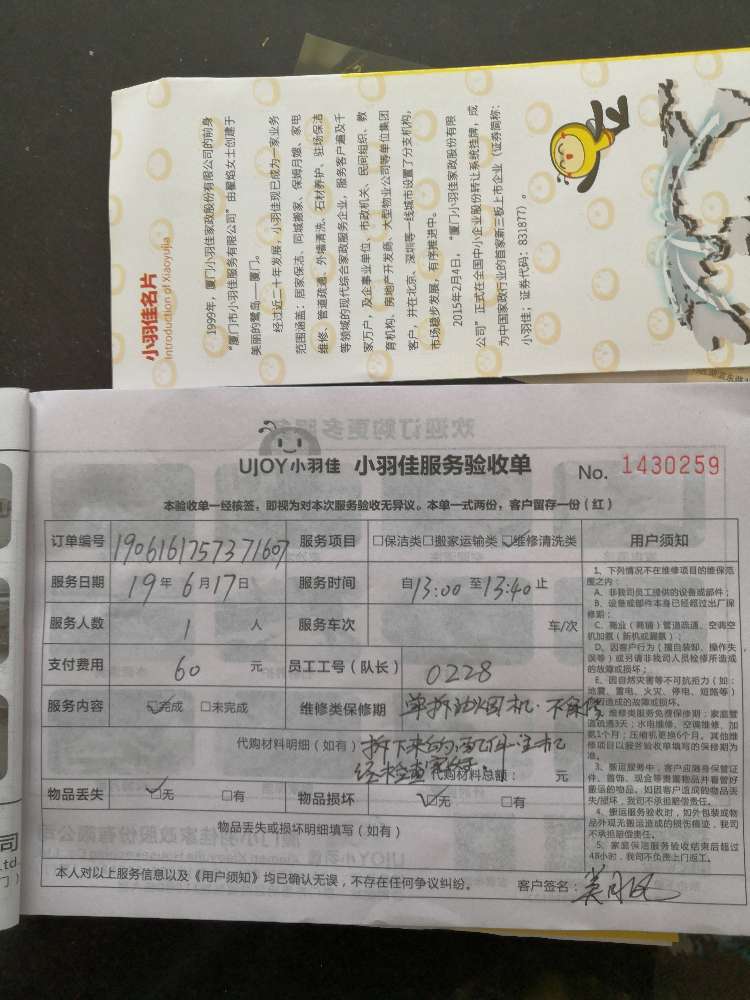 小羽佳名片
Introduction of Xiaoyujia
1999年，厦门小羽佳家政股份有限公司的前身
“厦门市小羽佳服务有限公司”由翟焰女士创建于
美丽的鹭岛——厦门。
经过近二十年发展，小羽佳现已成为一家业务
范围涵盖：居家保洁、同城搬家、保姆月嫂、家电
维修、管道疏通、外墙清洗、石材养护、驻场保洁
等领域的现代综合家政服务企业，服务客户遍及千
家万户，及企事业单位、市政机关、民间组织、教
育机构、房地产开发商、大型物业公司等单位集团
客户，并在北京、深圳等一线城市设置了分支机构，
市场稳步发展，有序推进中。
2015年2月4日，“厦门小羽佳家政股份有限
公司”正式在全国中小企业股份转让系统挂牌，成
为中国家政行业的首家新三板上市企业（证券简称：
小羽佳；证券代码：831877）。
欢迎订购更多服务
UJOY小羽佳 小羽佳服务验收单 No. 1430259
本验收单一经核签，即视为对本次服务验收无异议。本单一式两份，客户留存一份（红）
订单编号 1906161757371607 服务项目 □保洁类□搬家运输类☑维修清洗类 用户须知
服务日期 19年6月17日 服务时间 自13:00至13:40止
服务人数 1 人 服务车次 车/次
支付费用 60 元 员工工号（队长） 0228
服务内容 ☑完成 □未完成 维修类保修期 单拆油烟机·不保修
代购材料明细（如有） 拆下来的配件主机
经检查 代购材料总额： 元
物品丢失 ☑无 □有 物品损坏 ☑无 □有
物品丢失或损坏明细填写（如有）
本人对以上服务信息以及《用户须知》均已确认无误，不存在任何争议纠纷。 客户签名：
1、下列情况不在维修项目的维保范
围之内：
A、非我司员工提供的设备或部件；
B、设备或部件本身已经超过出厂保
修期；
C、商业（商铺）管道疏通、空调空
机加氟（新机或漏氟）；
D、因客户行为（擅自装卸、操作失
误等）或另请非我司人员检修所造成
的故障或损坏；
E、因自然灾害等不可抗拒力（如：
地震、雷电、火灾、停电、短路等）
造成的故障或损坏。
维修类服务免费保修期：家庭管
道疏通3天；水电维修、空调维修、加
氟1个月；压缩机更换6个月。其他维
修项目以服务验收单填写的保修期为
准。
3、搬运服务中，客户应随身保管证
件、首饰、现金等贵重物品并看管好
搬运的物品。如因客户造成的物品丢
失/损坏，我司不承担赔偿责任。
4、搬运服务验收时，如外包装或物
品外观无搬运造成的损伤痕迹，我司
不承担赔偿责任。
5、家庭保洁服务验收结束后超过
48小时，我司不负责上门返工。
司
Ltd.
门）